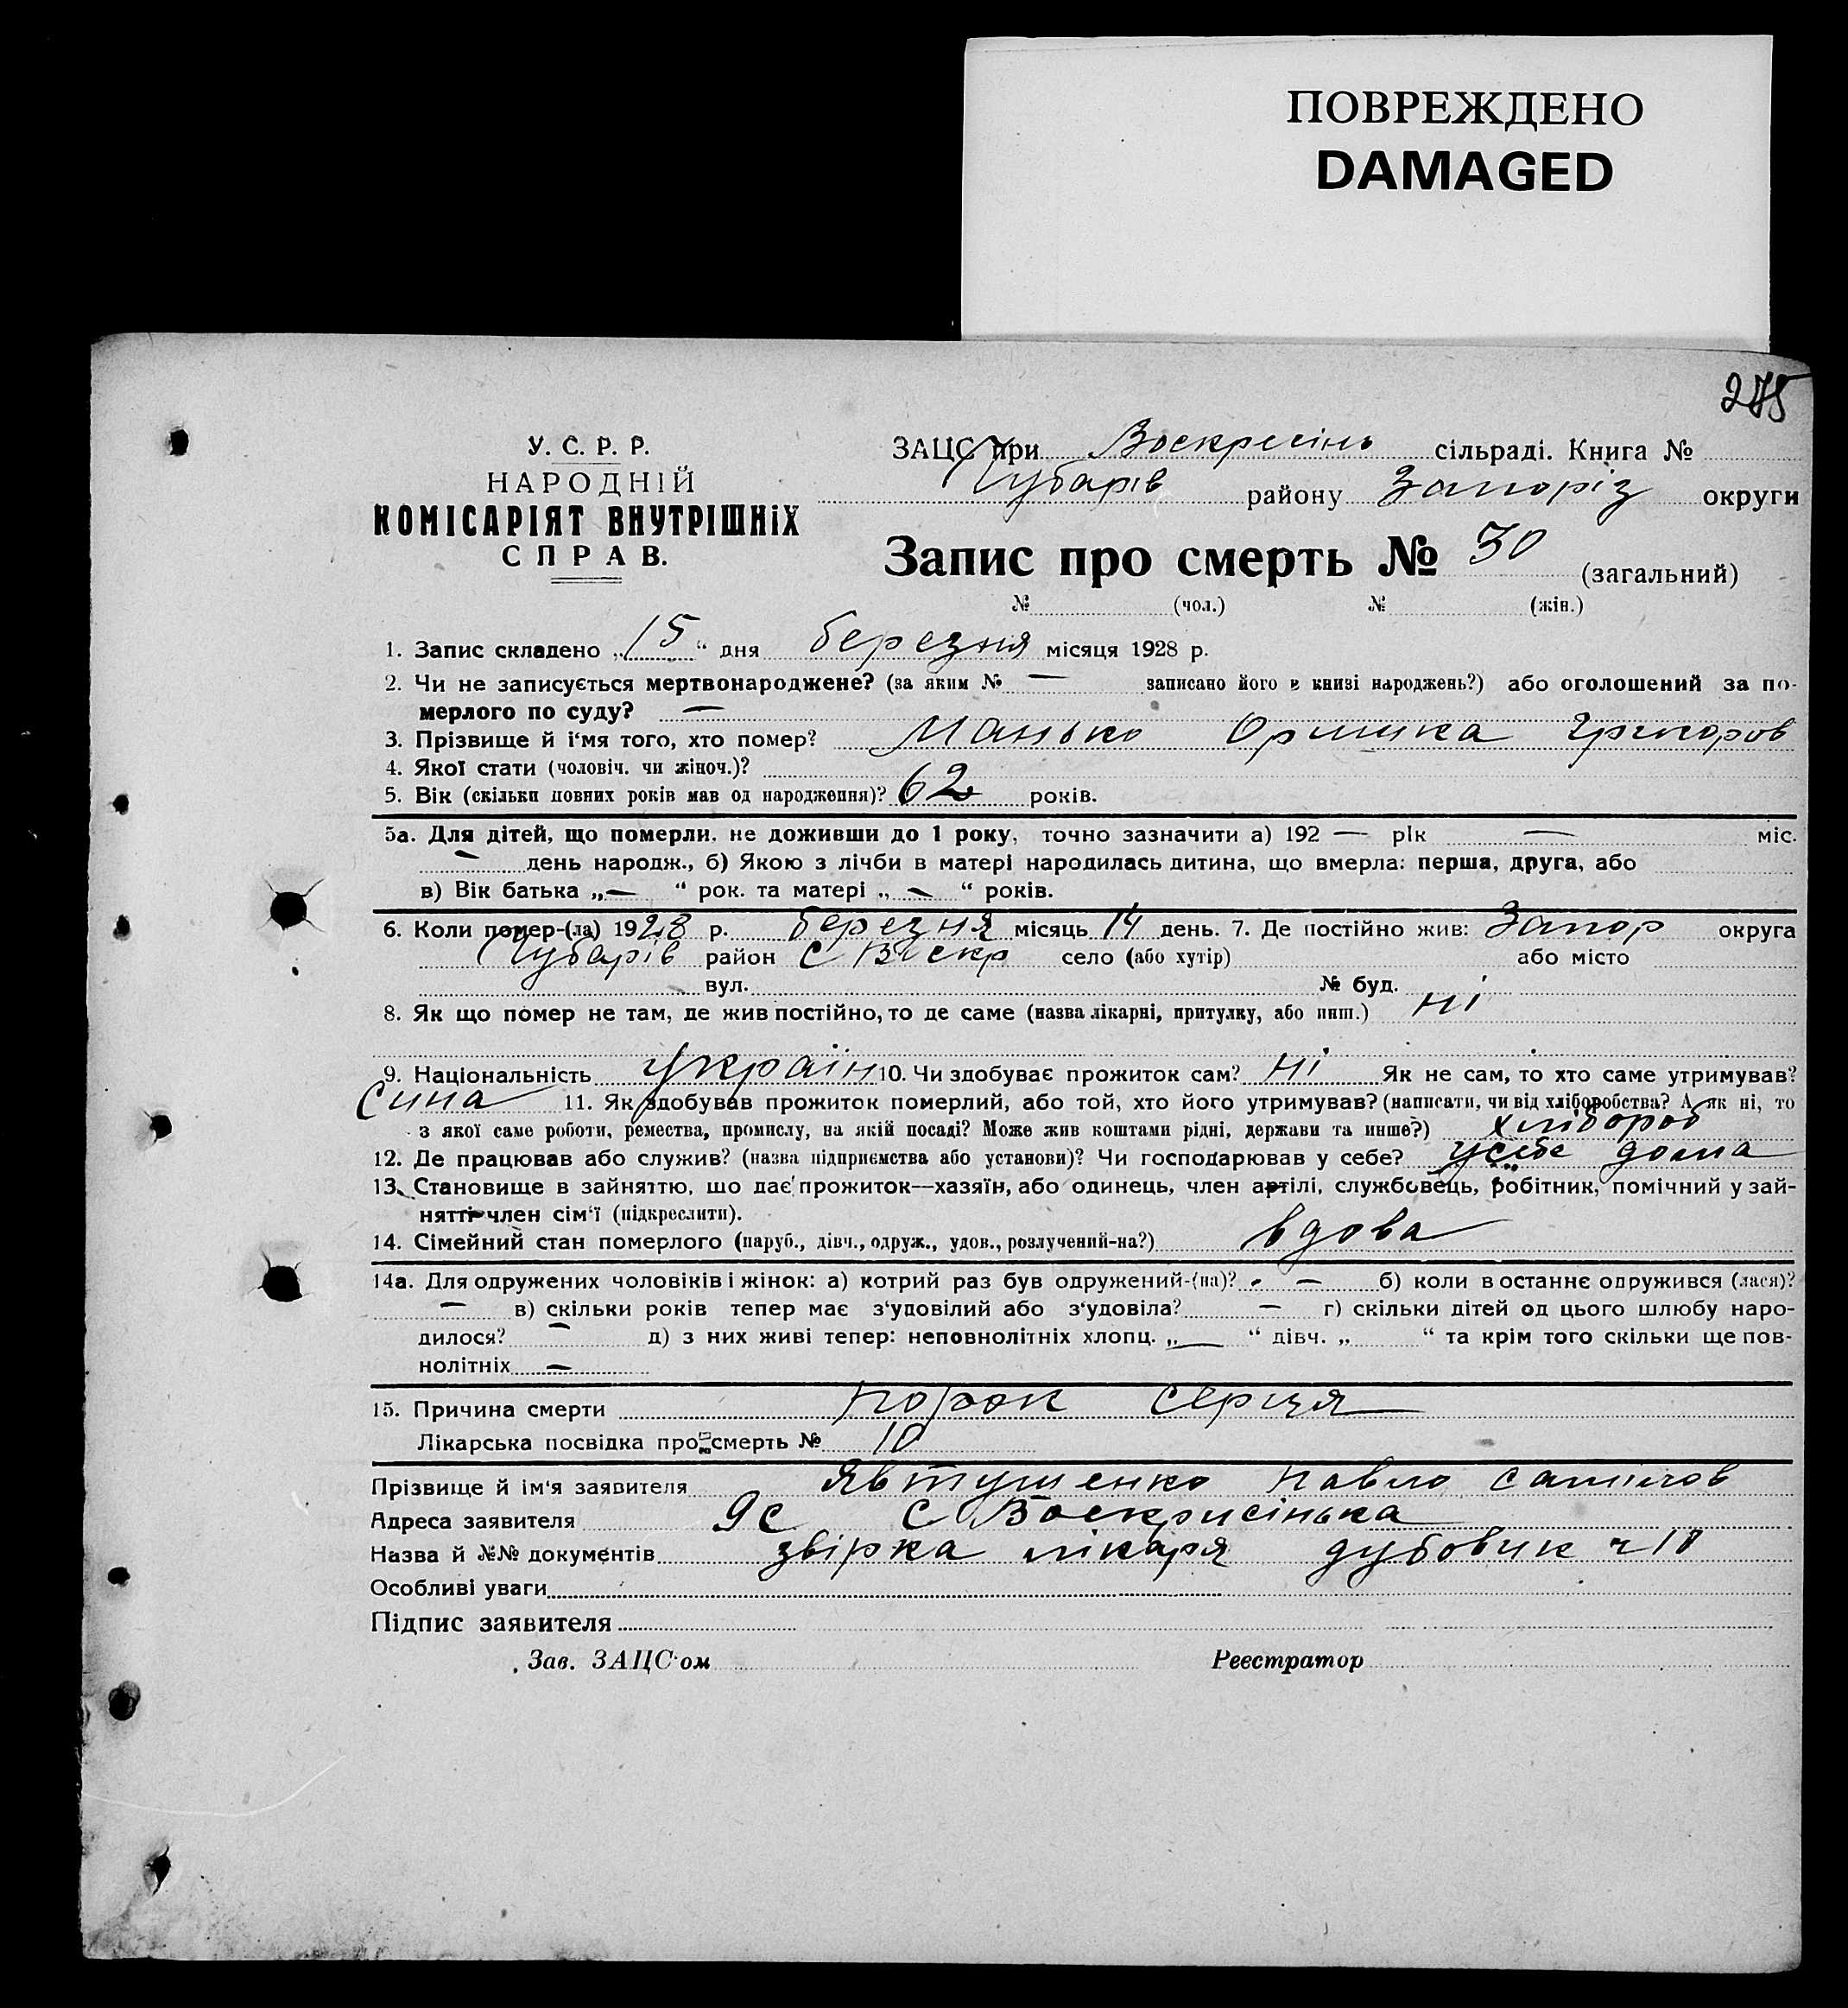 ПОВРЕЖДЕНО
DAMAGED
275
У. С. Р. Р.
НАРОДНІЙ
КОМІСАРІЯТ ВНУТРІШНіХ
СПРАВ.
ЗАЦС при Воскресінь сільраді. Книга №
Чубарів району Запоріз округи
Запис про смерть № 30 (загальний)
№ (чол.) № (жін.)
1. Запис складено „15“ дня березня місяця 1928 р.
2. Чи не записується мертвонароджене? (за яким № — записано його в книзі народжень?) або оголошений за по-
мерлого по суду? —
3. Прізвище й і'мя того, хто помер? Манько Оришка Григоров
4. Якої стати (чоловіч. чи жіноч.)?
5. Вік (скільки повних років мав од народження)? 62 років.
5а. Для дітей, що померли, не доживши до 1 року, точно зазначити а) 192 — рік — міс.
— день народж., б) Якою з лічби в матері народилась дитина, що вмерла: перша, друга, або
в) Вік батька „—“ рок. та матері „—“ років.
6. Коли помер-(ла) 1928 р. березня місяць 14 день. 7. Де постійно жив: Запор округа
Чубарів район С Воскр село (або хутір) або місто
вул. № буд.
8. Як що помер не там, де жив постійно, то де саме (назва лікарні, притулку, або инш.) ні
9. Національність україн 10. Чи здобуває прожиток сам? ні Як не сам, то хто саме утримував?
Сина 11. Як здобував прожиток померлий, або той, хто його утримував? (написати, чи від хліборобства? А як ні, то
з якої саме роботи, ремества, промислу, на якій посаді? Може жив коштами рідні, держави та инше?) хлібороб
12. Де працював або служив? (назва підприємства або установи)? Чи господарював у себе? усебе дома
13. Становище в зайняттю, що дає прожиток—хазяїн, або одинець, член артілі, службовець, робітник, помічний у зай-
нятті член сім'ї (підкреслити).
14. Сімейний стан померлого (паруб., дівч., одруж., удов., розлучений-на?) вдова
14а. Для одружених чоловіків і жінок: а) котрий раз був одружений-(на)? — б) коли в останнє одружився (лася)?
— в) скільки років тепер має з'уповілий або з'удовіла? — г) скільки дітей од цього шлюбу наро-
дилося? — д) з них живі тепер: неповнолітніх хлопц. „—“ дівч. „ “ та крім того скільки ще пов-
нолітніх —
15. Причина смерти порок серця
Лікарська посвідка про смерть № 10
Прізвище й ім'я заявителя Явтушенко Павло
Адреса заявителя с Воскрисінька
Назва й №№ документів звірка лікаря дубовик ч 10
Особливі уваги
Підпис заявителя
Зав. ЗАЦС'ом Реєстратор